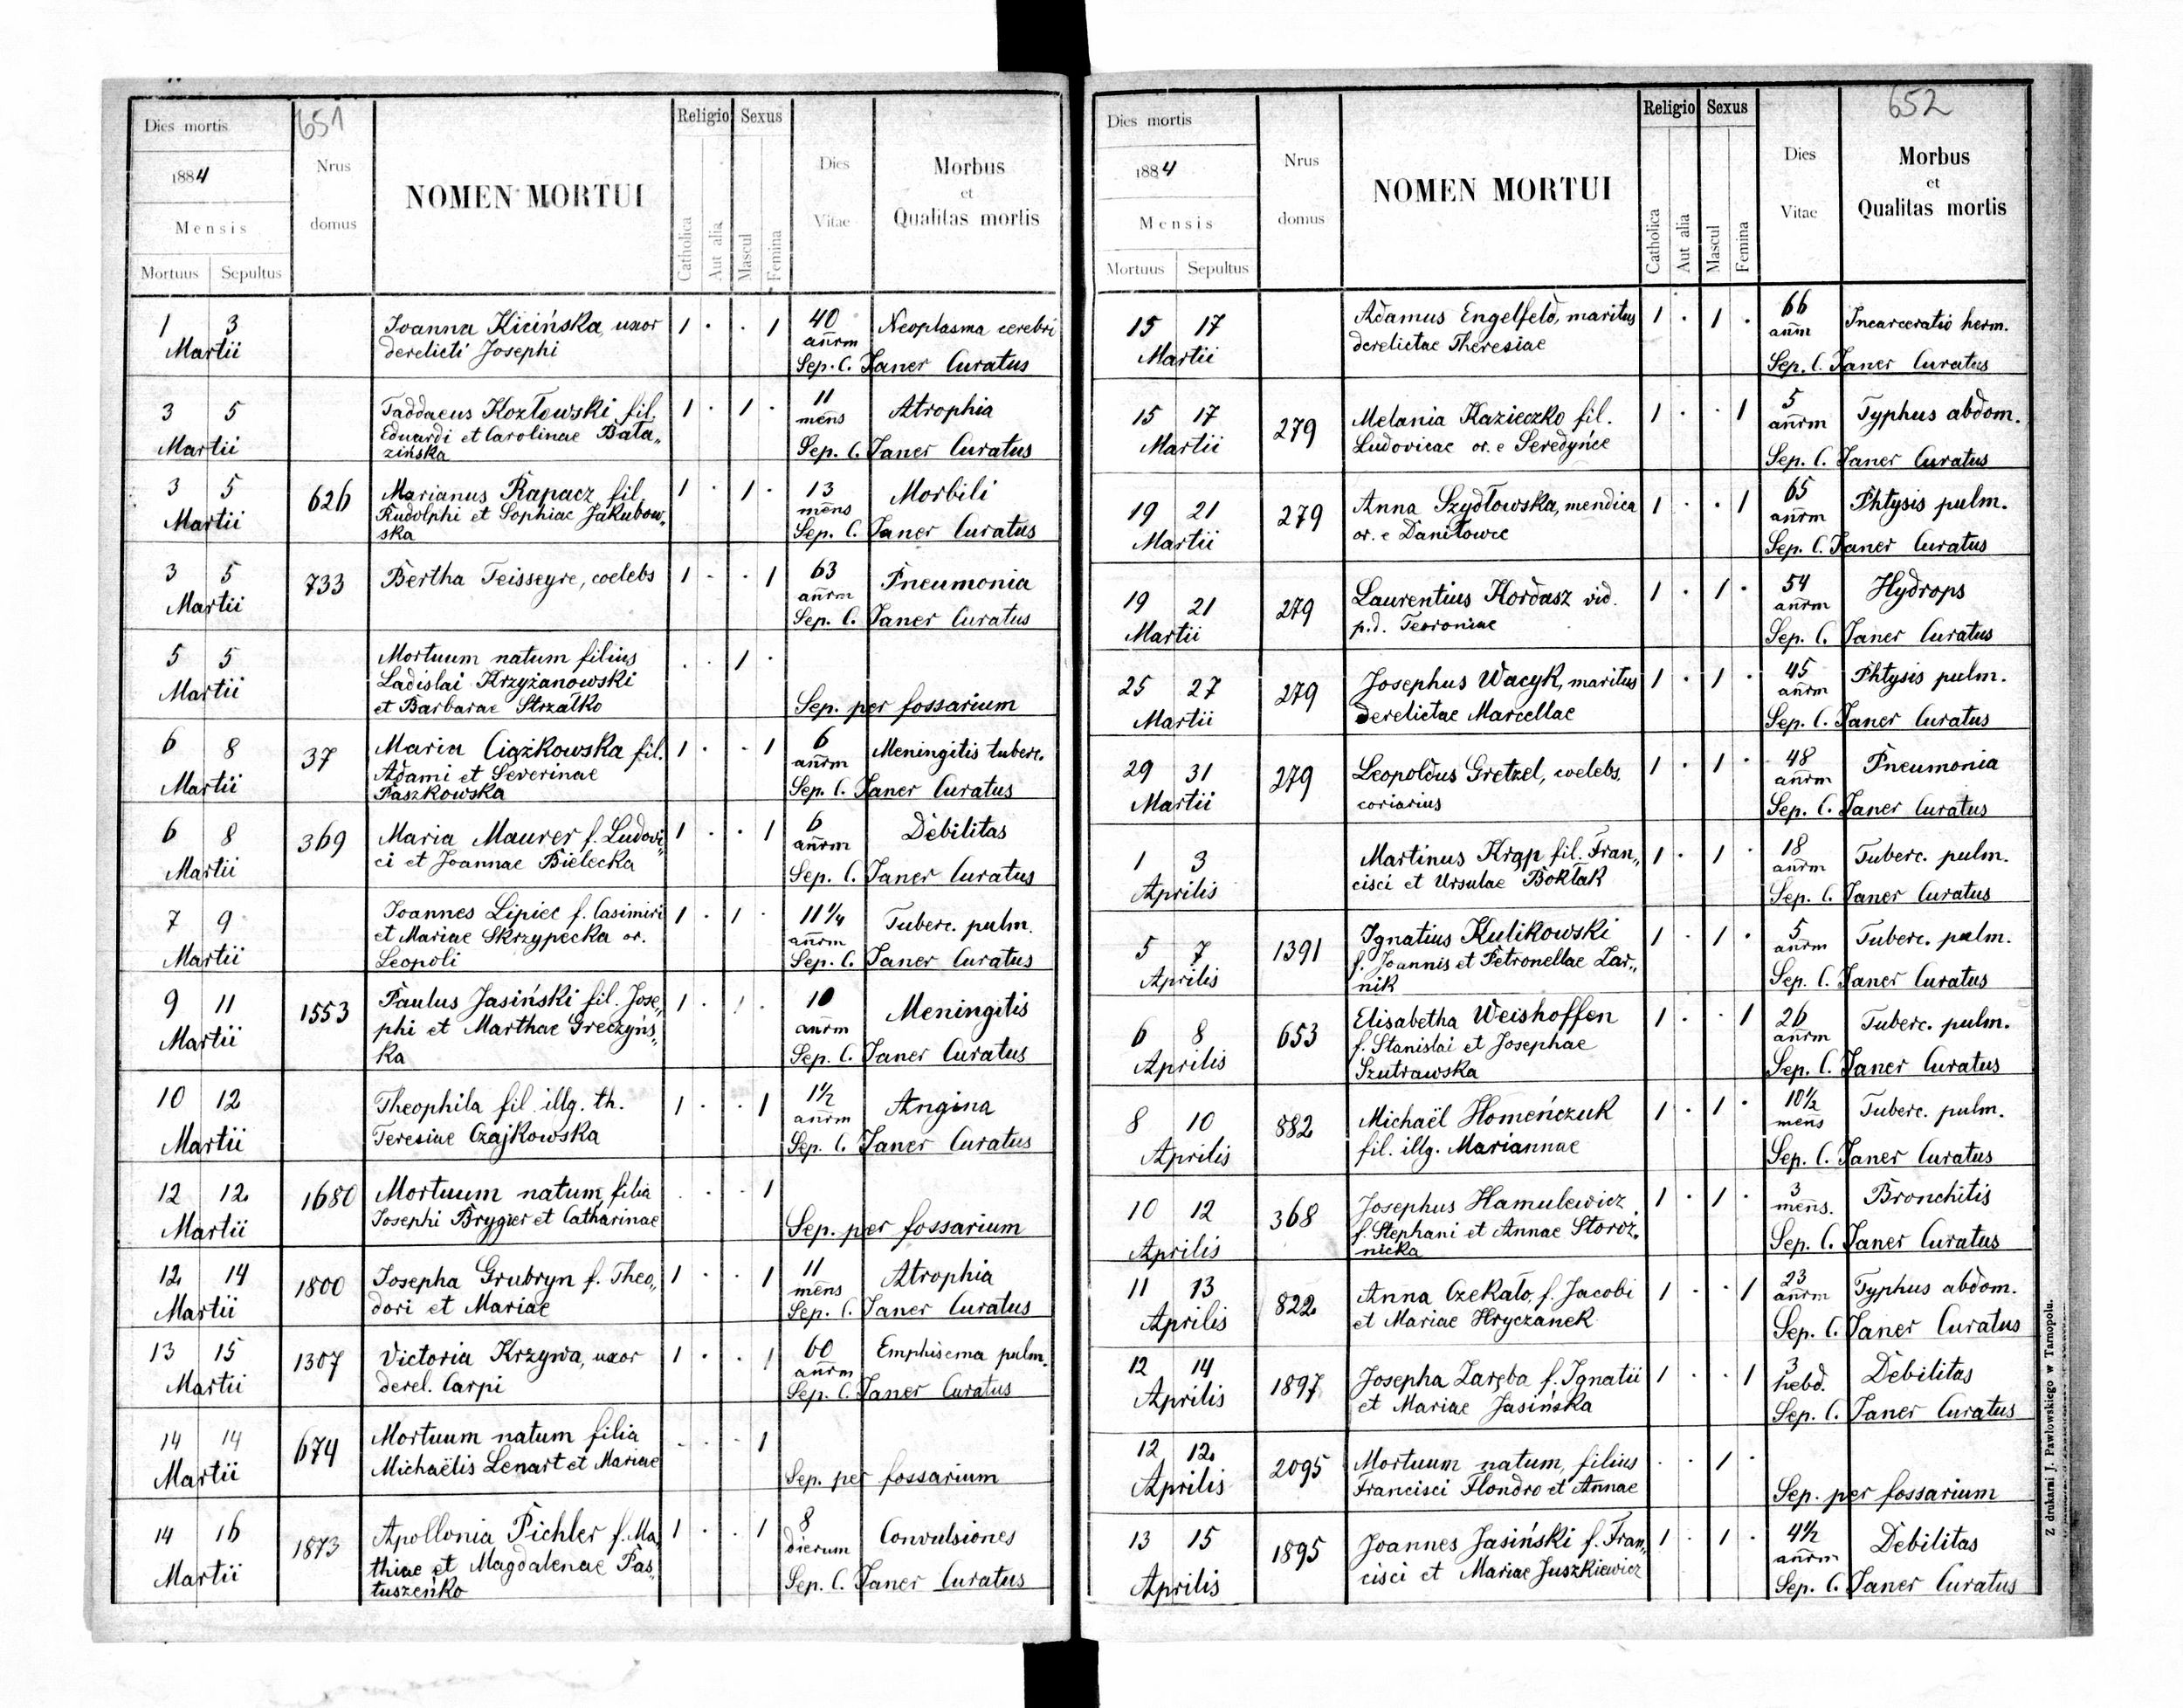 651
Dies mortis
1884
Mensis
Mortuus Sepultus
Nrus
domus
NOMEN MORTUI
Religio
Catholica
Aut alia
Sexus
Mascul
Femina
Dies
Vitae
Morbus
et
Qualitas mortis
1 3 Joanna Kicińska, uxor 1 . . 1 40 Neoplasma cerebri
Martii derelicti Josephi añrm
Sep. C. Janer Curatus
3 5 Taddaeus Kozłowski fil. 1 . 1 . 11 Atrophia
Martii Eduardi et Carolinae Bała„ mens
zińska Sep. C. Janer Curatus
3 5 626 Marianus Rapacz fil. 1 . 1 . 13 Morbili
Martii Rudolphi et Sophiae Jakubow„ mens
ska Sep. C. Janer Curatus
3 5 733 Bertha Teisseyre, coelebs 1 . . 1 63 Pneumonia
Martii añrm
Sep. C. Janer Curatus
5 5 Mortuum natum filius . . 1 .
Martii Ladislai Krzyżanowski
et Barbarae Strzałko Sep. per fossarium
6 8 37 Maria Ciążkowska fil. 1 . . 1 6 Meningitis tuberc.
Martii Adami et Severinae añrm
Paszkowska Sep. C. Janer Curatus
6 8 369 Maria Maurer f. Ludovi„ 1 . . 1 6 Debilitas
Martii ci et Joannae Bielecka añrm
Sep. C. Janer Curatus
7 9 Joannes Lipiec f. Casimiri 1 . 1 . 11 1/4 Tuberc. pulm.
Martii et Mariae Skrzypecka or. añrm
Leopoli Sep. C. Janer Curatus
9 11 1553 Paulus Jasiński fil. Jose„ 1 . 1 . 10 Meningitis
Martii phi et Marthae Greczyńs„ añrm
ka Sep. C. Janer Curatus
10 12 Theophila fil. illg. th. 1 . . 1 1½ Angina
Martii Teresiae Czajkowska añrm
Sep. C. Janer Curatus
12 12 1680 Mortuum natum filia . . . 1
Martii Josephi Brygier et Catharinae Sep. per fossarium
12 14 1800 Josepha Grubryn f. Theo„ 1 . . 1 11 Atrophia
Martii dori et Mariae mens
Sep. C. Janer Curatus
13 15 1307 Victoria Krzywa, uxor 1 . . 1 60 Emphisema pulm.
Martii derel. Carpi añrm
Sep. C. Janer Curatus
14 14 674 Mortuum natum filia . . . 1
Martii Michaëlis Lenart et Mariae Sep. per fossarium
14 16 1873 Apollonia Pichler f. Ma„ 1 . . 1 8 Convulsiones
Martii thiae et Magdalenae Pas„ dierum
tuszeńko Sep. C. Janer Curatus
652
Dies mortis
1884
Mensis
Mortuus Sepultus
Nrus
domus
NOMEN MORTUI
Religio
Catholica
Aut alia
Sexus
Mascul
Femina
Dies
Vitae
Morbus
et
Qualitas mortis
15 17 Adamus Engelfeld, maritus 1 . 1 . 66 Incarceratio herm.
Martii derelictae Theresiae añm
Sep. C. Janer Curatus
15 17 279 Melania Kazieczko fil. 1 . . 1 5 Typhus abdom.
Martii Ludovicae or. e Seredyńce añrm
Sep. C. Janer Curatus
19 21 279 Anna Szydłowska, mendica 1 . . 1 65 Phtysis pulm.
Martii or. e Daniłowce añrm
Sep. C. Janer Curatus
19 21 279 Laurentius Kordasz vid. 1 . 1 . 54 Hydrops
Martii p.d. Feoroniae añrm
Sep. C. Janer Curatus
25 27 279 Josephus Wacyk, maritus 1 . 1 . 45 Phtysis pulm.
Martii derelictae Marcellae añrm
Sep. C. Janer Curatus
29 31 279 Leopoldus Gretzel, coelebs, 1 . 1 . 48 Pneumonia
Martii coriarius añrm
Sep. C. Janer Curatus
1 3 Martinus Krąp fil. Fran„ 1 . 1 . 18 Tuberc. pulm.
Aprilis cisci et Ursulae Bokłak añrm
Sep. C. Janer Curatus
5 7 1391 Ignatius Kulikowski 1 . 1 . 5 Tuberc. pulm.
Aprilis f. Joannis et Petronellae Żar„ añrm
nik Sep. C. Janer Curatus
6 8 653 Elisabetha Weishoffen 1 . . 1 26 Tuberc. pulm.
Aprilis f. Stanislai et Josephae añrm
Szutrawska Sep. C. Janer Curatus
8 10 882 Michaël Homeńczuk 1 . 1 . 10½ Tuberc. pulm.
Aprilis fil. illg. Mariannae mens
Sep. C. Janer Curatus
10 12 368 Josephus Hamulewicz 1 . 1 . 3 Bronchitis
Aprilis f. Stephani et Annae Storoż„ mens.
nicka Sep. C. Janer Curatus
11 13 822 Anna Czekało f. Jacobi 1 . . 1 23 Typhus abdom.
Aprilis et Mariae Hryczanek añrm
Sep. C. Janer Curatus
12 14 1897 Josepha Zaręba f. Ignatii 1 . . 1 3 Debilitas
Aprilis et Mariae Jasińska hebd.
Sep. C. Janer Curatus
12 12 2095 Mortuum natum, filius . . 1 .
Aprilis Francisci Hondro et Annae Sep. per fossarium
13 15 1895 Joannes Jasiński f. Fran„ 1 . 1 . 4½ Debilitas
Aprilis cisci et Mariae Juszkiewicz añrm
Sep. C. Janer Curatus
Z drukarni J. Pawłowskiego w Tarnopolu.